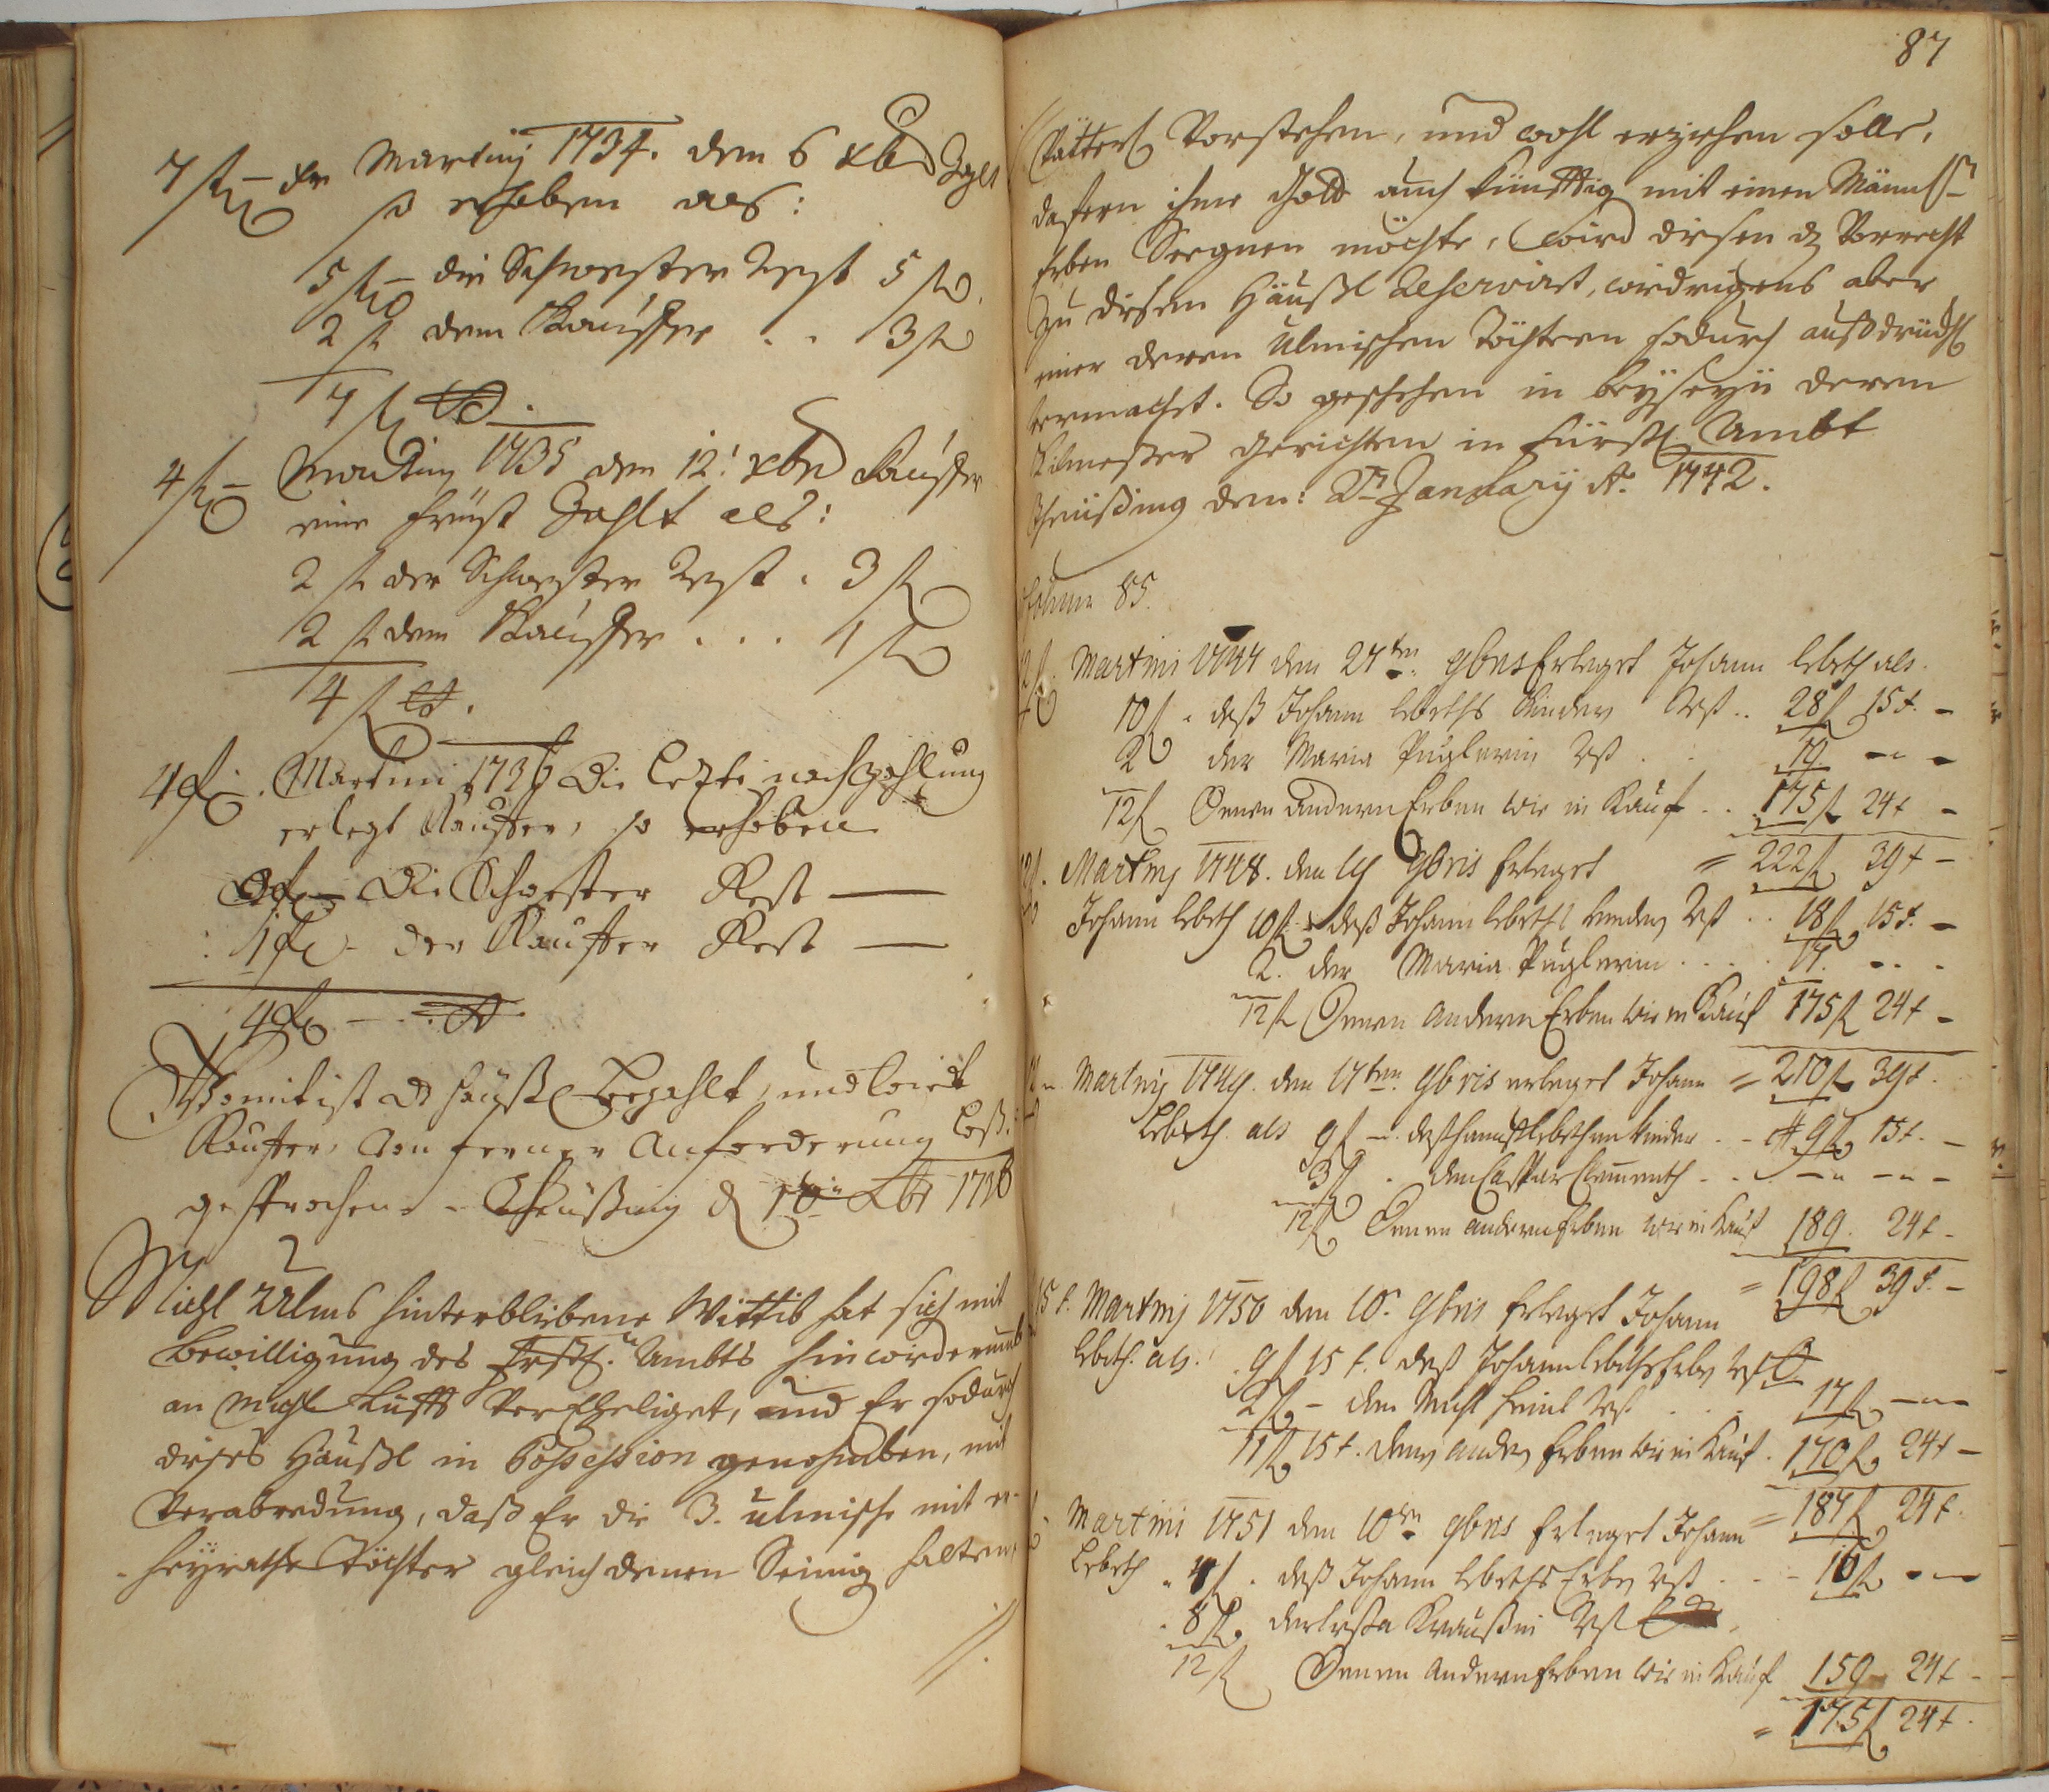 7 fl – Martiny 1734. den 6 xbr
so erhoben als:
5 fl – die Schwester Rest 5 fl
2 fl dem Kauffer . . 3 fl
7 fl
4 fl – Martiny 1735 den 12t xbr Kauffer
eine Frist Zahlt als:
2 fl der Schwester Rest . 3 fl
2 fl dem Kauffer . . . 1 fl
4 fl
4 fl. Martini 1736 Die letzte nachzahlung
erlegt Kauffer, so erhoben
3 fl – Die Schwester Rest —
1 fl – der Kauffer Rest —
4 fl –
Womit ist Häußl bezahlt, und wirdt
Kauffer, von ferner Anforderung loß:
gesprochen. – 1736
Michl Ulms hinterblibene Wittib hat sich mit
bewilligung des Ambts hinwiderumb
an Michl Lufft Verehliget, und Er sodurch
dises Häußl in Possession genohmben, mit
Verabredung, daß Er die 3. ulmische mit er-
heyrathe Töchter gleich denen Seinig halten,
87
Vorstehen, und wohl erziehen solle,
dafern ihme Gott auch künfftig mit einen Männl:
Erben Seegnen möchte, wird disen dz Vorrecht
zu disem Häußl Reservirt, widrigens aber
einer deren Ulmischen Töchteren sodurch außdrückl
vermacht. So geschehen in beyseyn deren
gerichten in Fürstl Ambt
den: January Ao. 1742.
85.
12 fl. Martini 1747 den 27ten 9bris Erleget Johann Lebeth als.
10 fl . deß Johann Lebeths Kinder Rest .. 28 fl 15 x. –
2 der Maria Puglerin Rest . . 19 – –
12 fl Denen andern Erben wie in Kauf . . 175 fl 24 x –
= 222 fl 39 x –
Martiny 1748. den 14 9bris Erleget
Johann Lebeth 10 fl deß Johann Lebeths Kinder Rest .. 18 fl 15 x. –
2. der Maria Puglerin . . . . 17. – – –
12 fl Denen Andern Erben wie in Kauf 175 fl 24 x –
= 210 fl 39 x.
Martiny 1749. den 17ten 9bris erleget Johann
Lebeth. als 9 fl – Kinder . – 9 fl 15 x. –
3 fl . dem Caspar Clementh – . . – – –
12 fl Denen andern Erben wie in Kauf 189. 24 x –
= 198 fl 39 x. –
Martiny 1750 den 10. 9bris Erleget Johann
Lebeth. als. 9 fl 15 x. deß Johann Lebeths Erben Rest
2 fl – dem Michl Rest . . . 17 fl – – –
11 fl 15 x. denen andern Erben wie in Kauf . 170 fl 24 x –
= 187 fl 24 x.
Martini 1751 den 10ten 9bris Erleget Johann
Lebeth . 4 fl . deß Johann Lebeths Erben Rest . – – 16 fl – –
8 fl. Rest
12 fl Denen Andern Erben wie in Kauf 159 24 x –
= 175 fl 24 x.